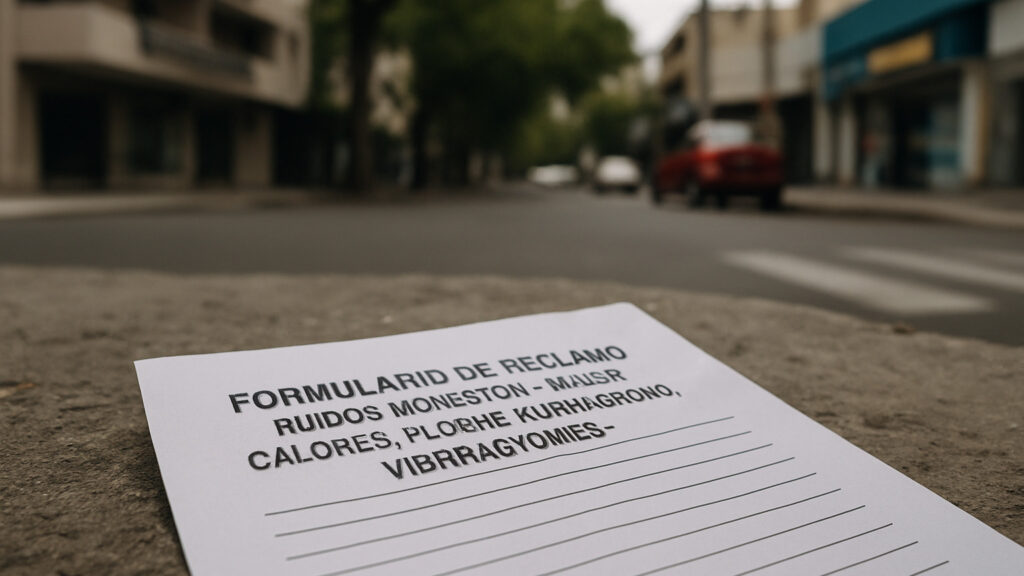 FORMULARID DE RECLAMO
RUIDOS MONESTON - MAUSR
CALORES, PLOBHE KURHAGRONO,
VIBRRAGYOMIES-